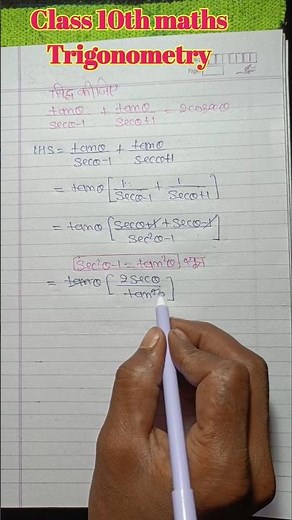 Class 10th maths
Trigonometry
सिद्ध कीजिए
tanθ/secθ-1 + tanθ/secθ+1 = 2cosecθ
LHS = tanθ/secθ-1 + tanθ/secθ+1
= tanθ [1/secθ-1 + 1/secθ+1]
= tanθ [secθ+1+secθ-1/sec²θ-1]
[sec²θ-1 = tan²θ] सूत्र
= tanθ [2secθ/tan²θ]